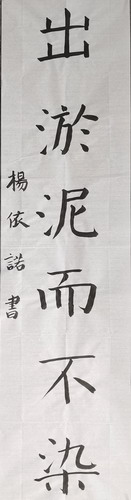 出淤泥而不染
楊依諾書